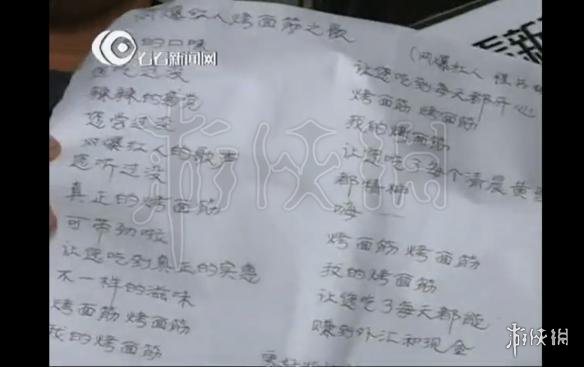 网爆红人烤面筋之歌
的口味
您吃过没
辣辣的感觉
您尝过没
网爆红人的歌声
您听过没
真正的烤面筋
可带劲啦
让您吃到真正的实惠
不一样的滋味
烤面筋 烤面筋
我的烤面筋
(网爆红人
让您吃到每天都开心
烤面筋 烤面筋
我的烤面筋
让您吃了每个清晨黄昏
都精神
嗨——
烤面筋 烤面筋
我的烤面筋
让您吃了每天都能
赚到外汇和现金
看看新闻网
游侠網
看新
游侠網